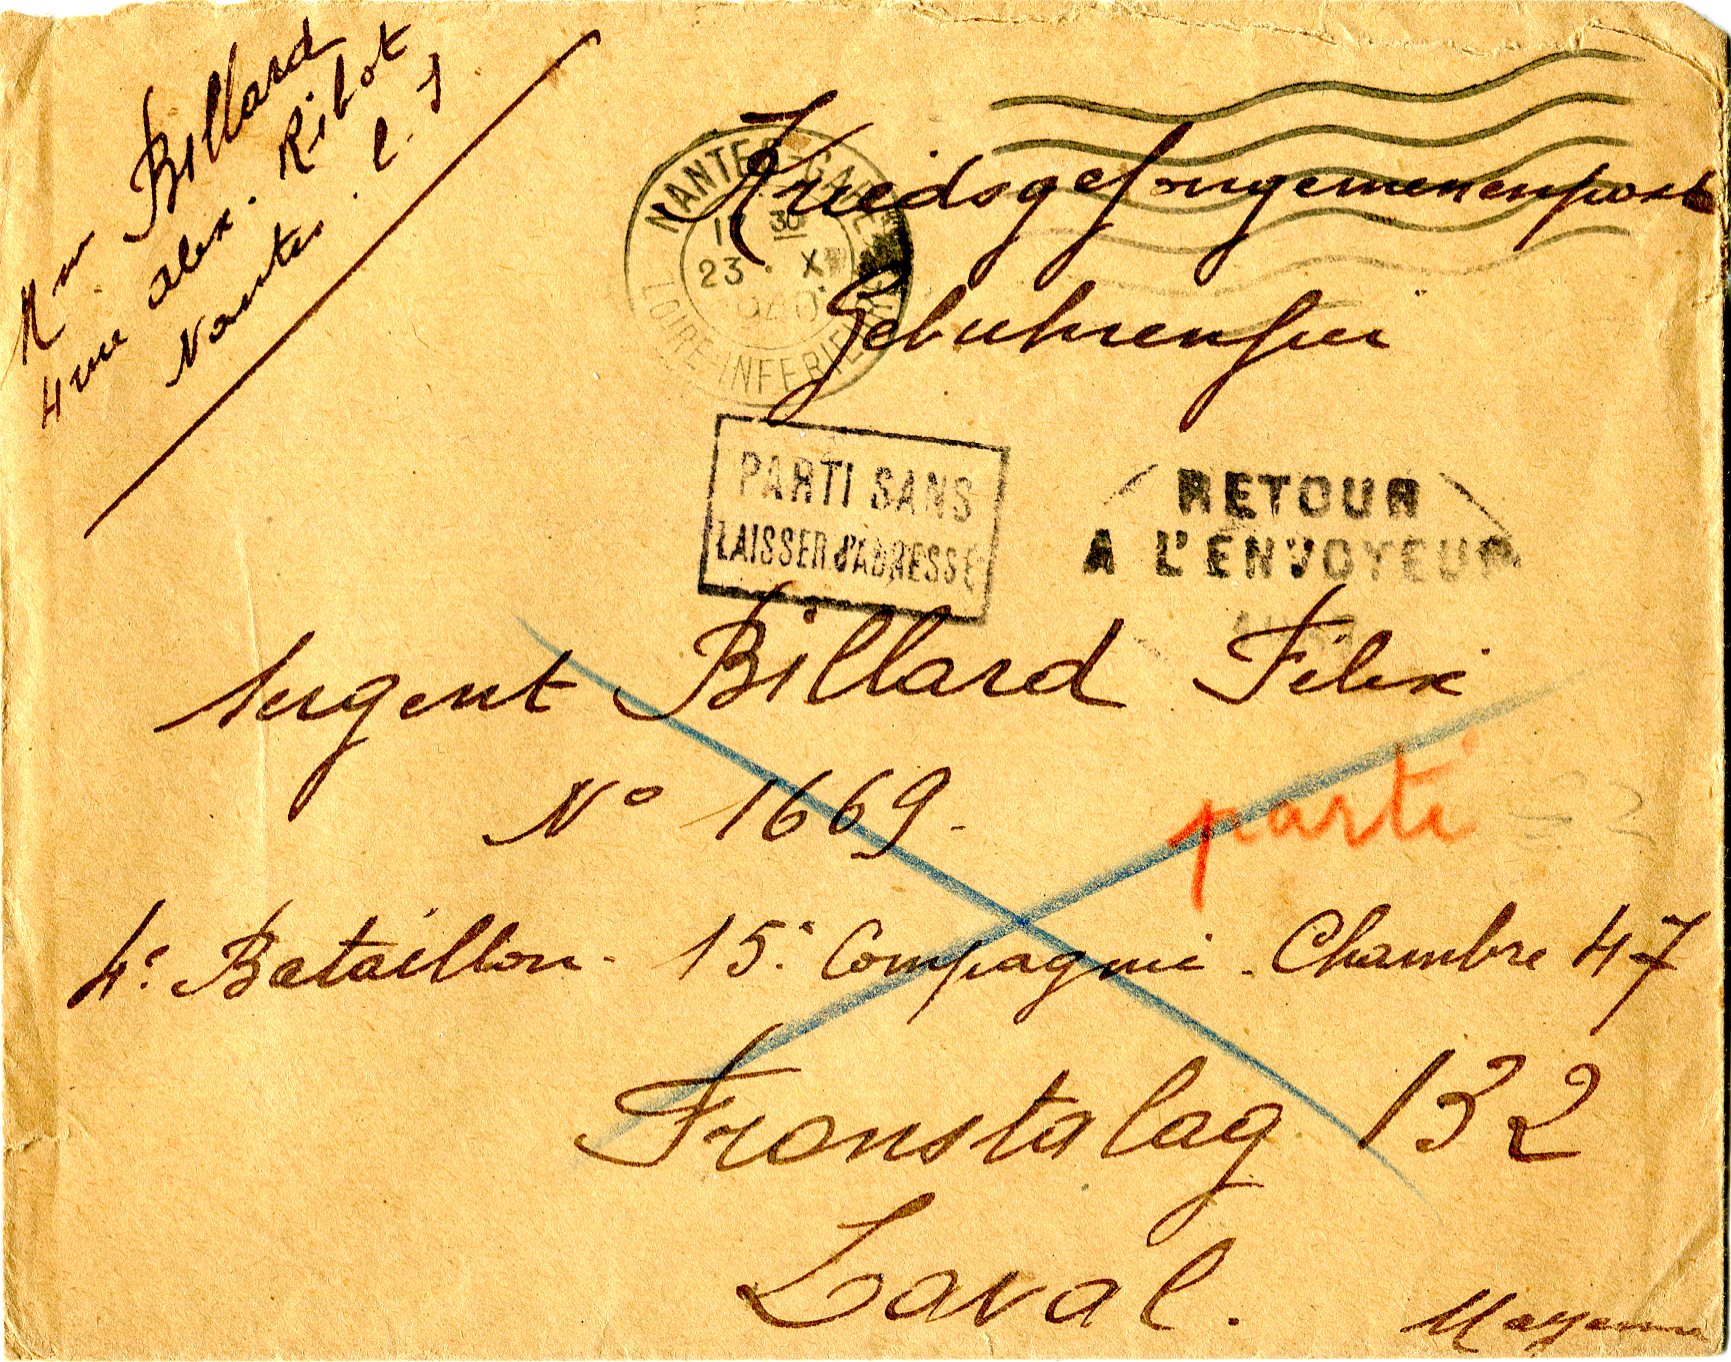 Mme Billard
4 rue Alex. Ribot
Nantes. L. I
NANTES-GARE
30
23 · X
1940
LOIRE-INFERIEURE
Kriedsgefongemenenpost
Gebuhrenfrei
PARTI SANS
LAISSER D'ADRESSE
RETOUR
A L'ENVOYEUR
Sergent Billard Félix
N° 1669.
parti
4e Bataillon. 15e Compagnie. Chambre 47
Fronstalag 132
Laval.
Mayenne